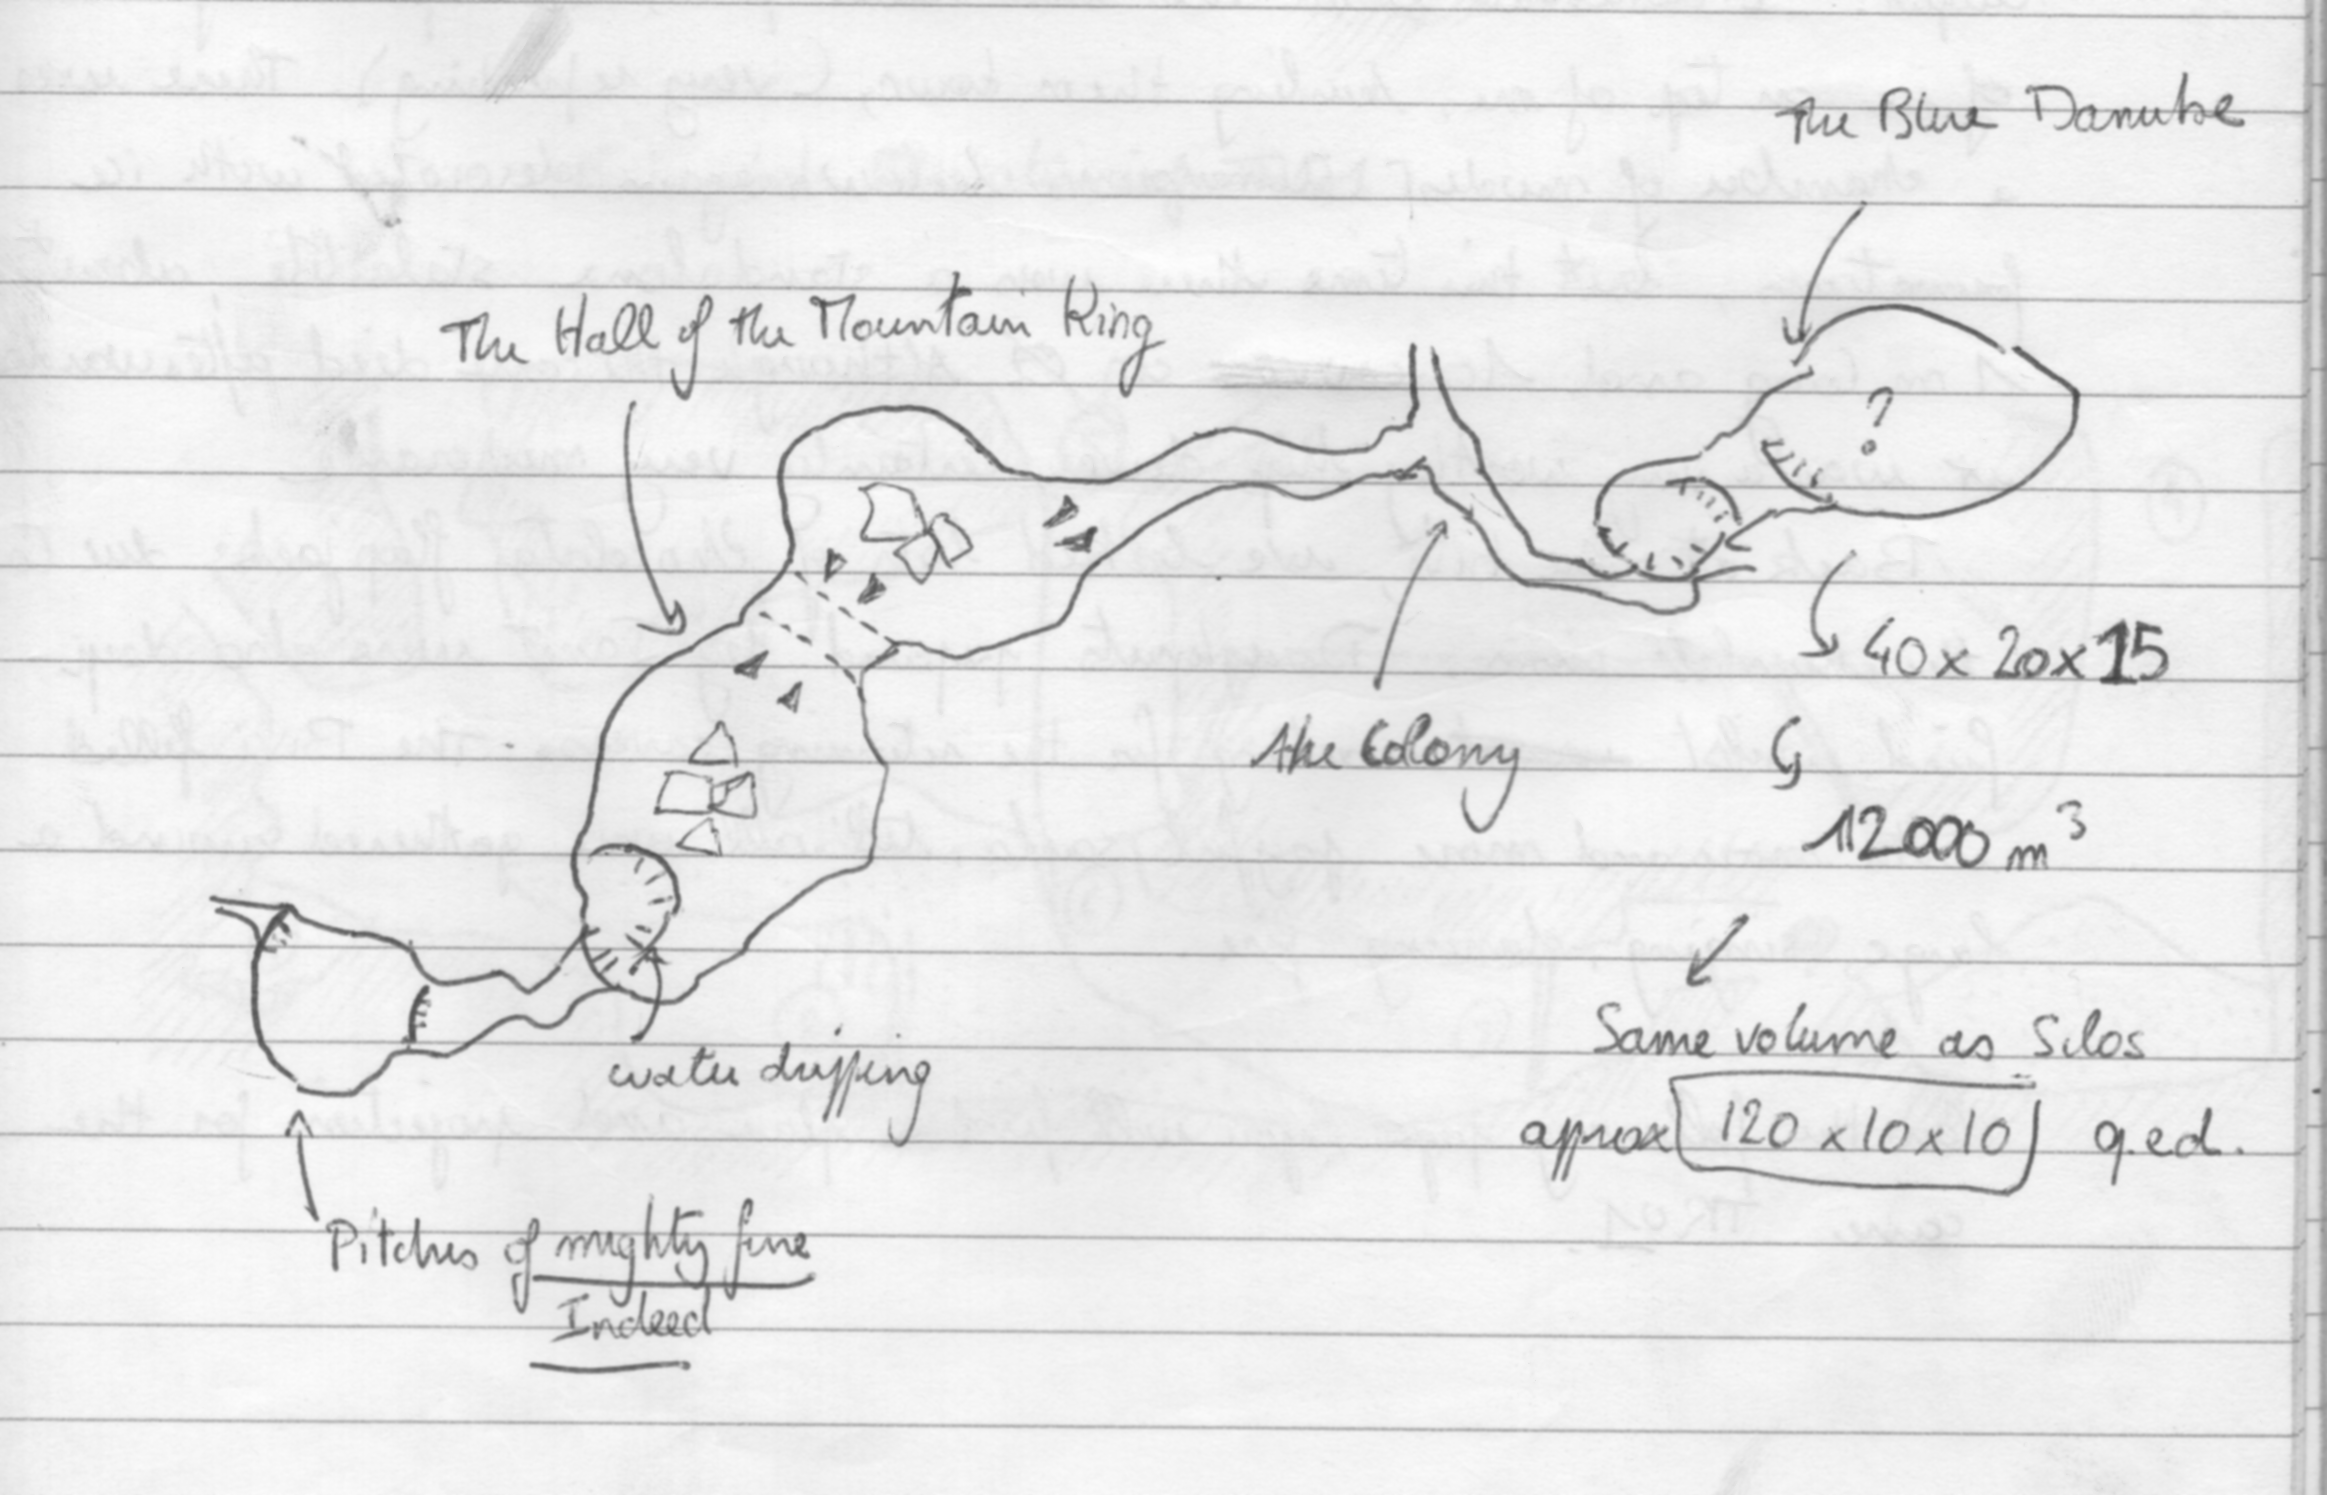 The Blue Danube
The Hall of the Mountain King
?
40 x 20 x 15
the Colony
12000 m³
Same volume as Silos
water dripping
approx 120 x 10 x 10 q.e.d.
Pitches of mighty fine
Indeed